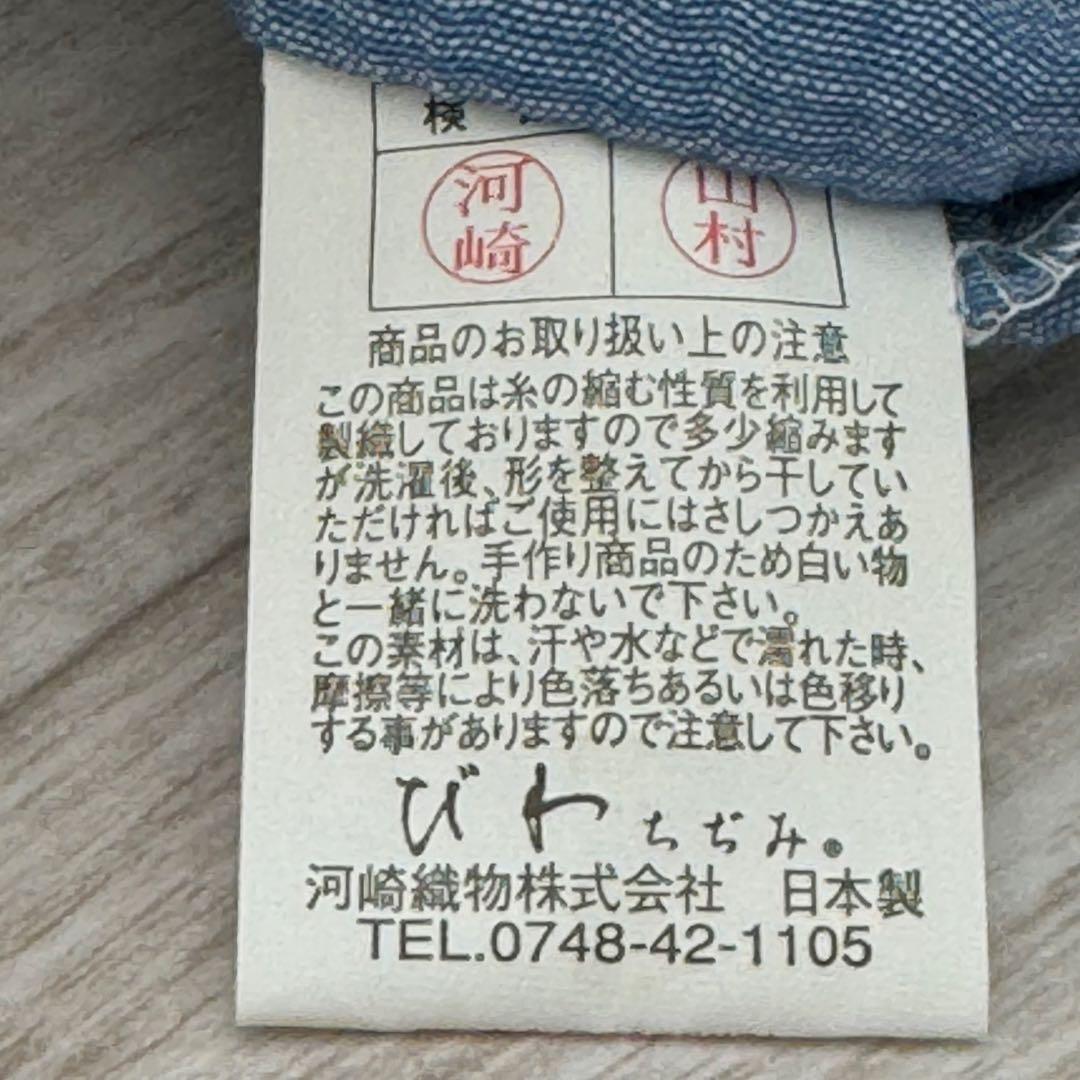 検
河崎
山村
商品のお取り扱い上の注意
この商品は糸の縮む性質を利用して
製織しておりますので多少縮みます
が洗濯後、形を整えてから干してい
ただければご使用にはさしつかえあ
りません。手作り商品のため白い物
と一緒に洗わないで下さい。
この素材は、汗や水などで濡れた時、
摩擦等により色落ちあるいは色移り
する事がありますので注意して下さい。
びわちぢみ®
河崎織物株式会社 日本製
TEL.0748-42-1105